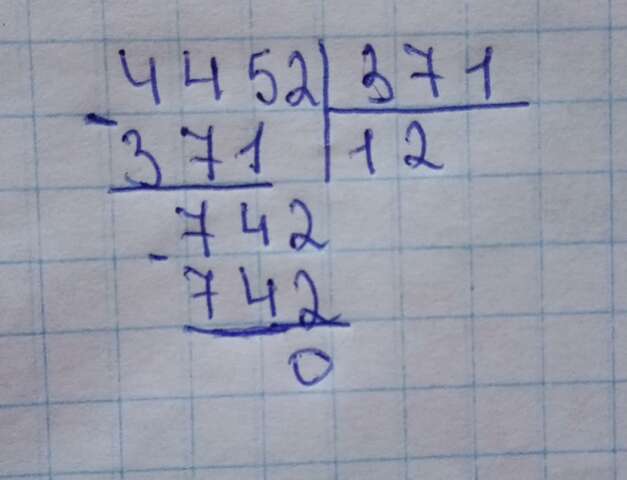 4452 371
- 371 12
742
- 742
0